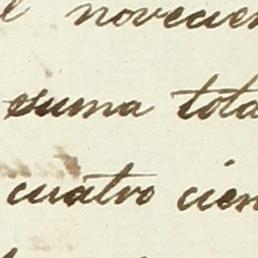 l novecien
suma tota
cuatro cien